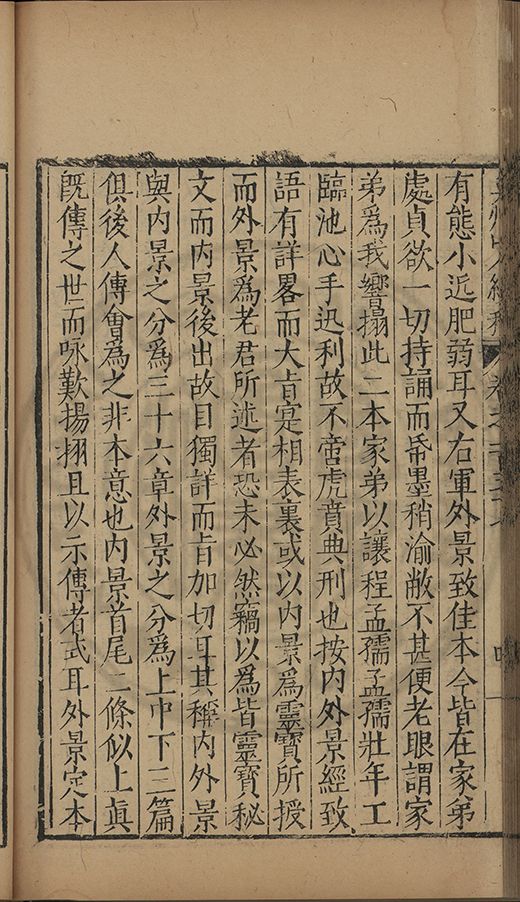 有態小近肥弱耳又右軍外景致佳本今皆在家弟
處貞欲一切持誦而帋墨稍渝敝不甚便老眼謂家
弟爲我響搨此二本家弟以讓程孟孺孟孺壯年工
臨池心手迅利故不啻虎賁典刑也按內外景經致
語有詳畧而大㫖寔相表裏或以內景爲靈寶所授
而外景爲老君所述者恐未必然竊以爲皆靈寶秘
文而內景後出故目獨詳而㫖加切耳其稱內外景
與內景之分爲三十六章外景之分爲上中下三篇
俱後人傳會爲之非本意也內景首尾二條似上眞
旣傳之世而咏歎揚挧且以示傳者式耳外景定本